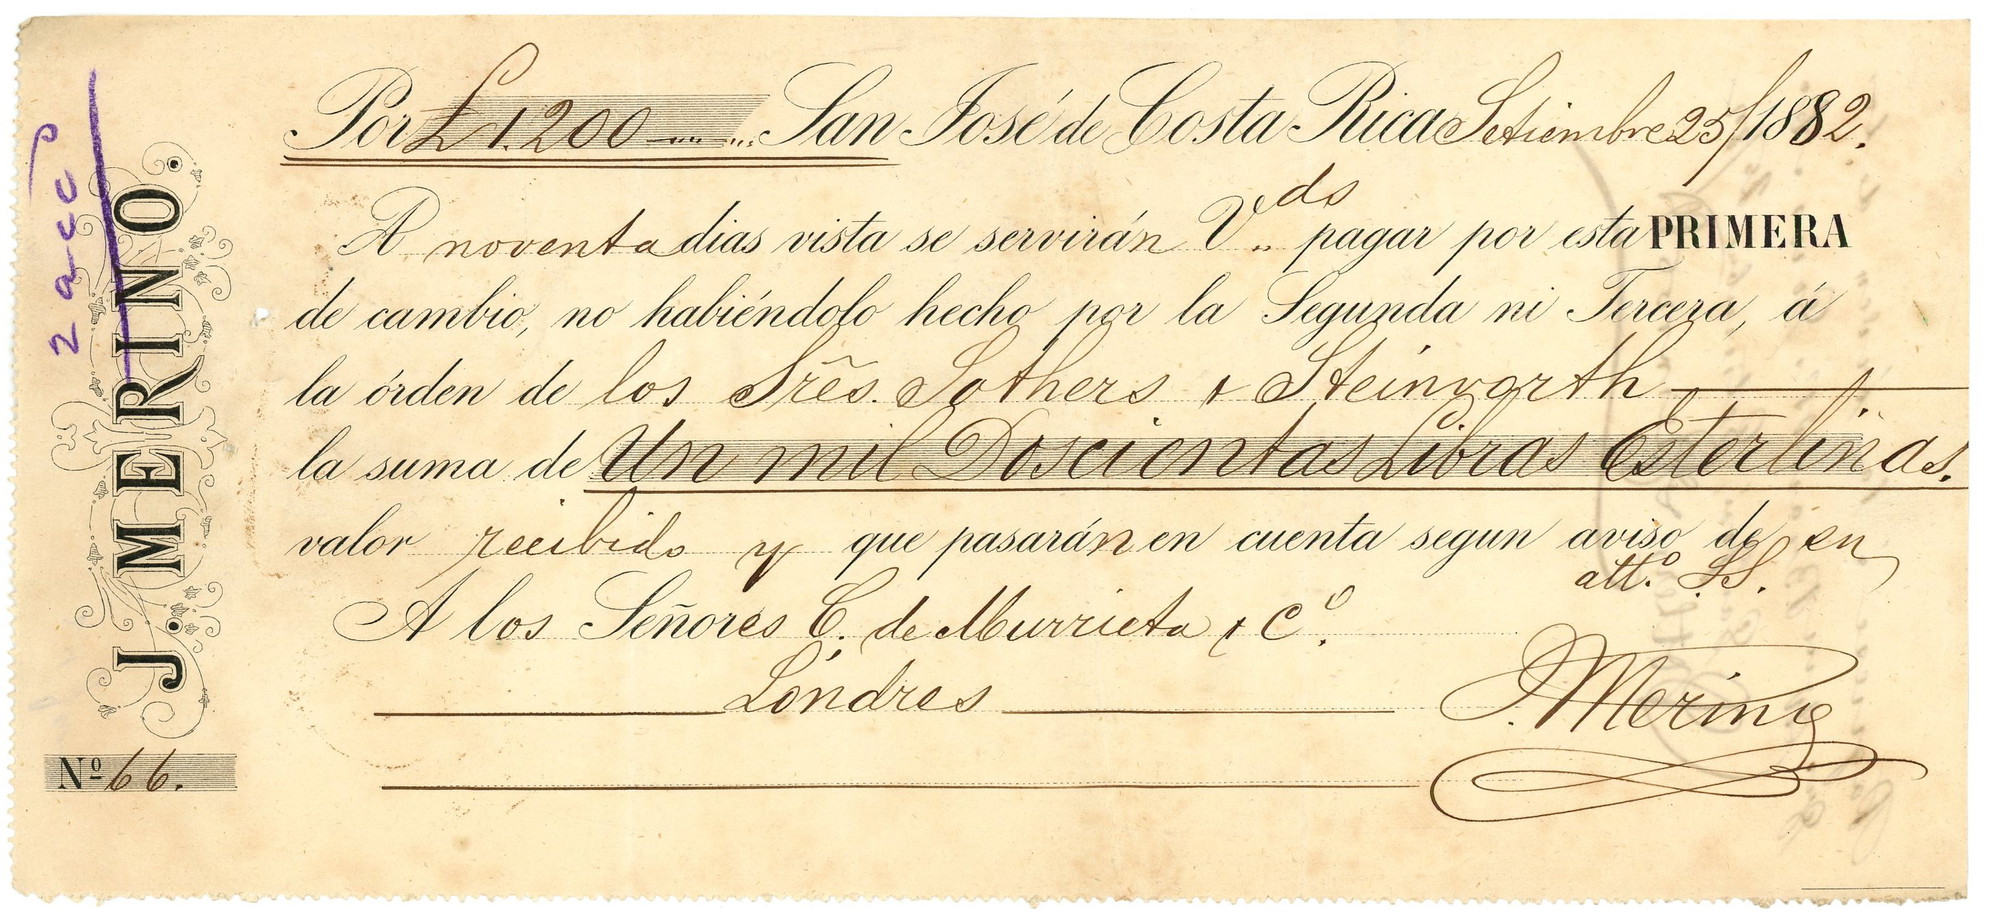 Por £1.200 San José de Costa Rica Setiembre 25/1882.
A noventa dias vista se servirán V.ds pagar por esta PRIMERA
de cambio, no habiéndolo hecho por la Segunda ni Tercera, á
la órden de los Srẽs. Sothers & Steinvorth
la suma de Un mil Doscientas Libras Esterlinas.
valor recibido y que pasarán en cuenta segun aviso de en
att.o S.S.
A los Señores C. de Murrieta & Co.
Lóndres
J. Merino
J. MERINO.
No 66.
2 acc